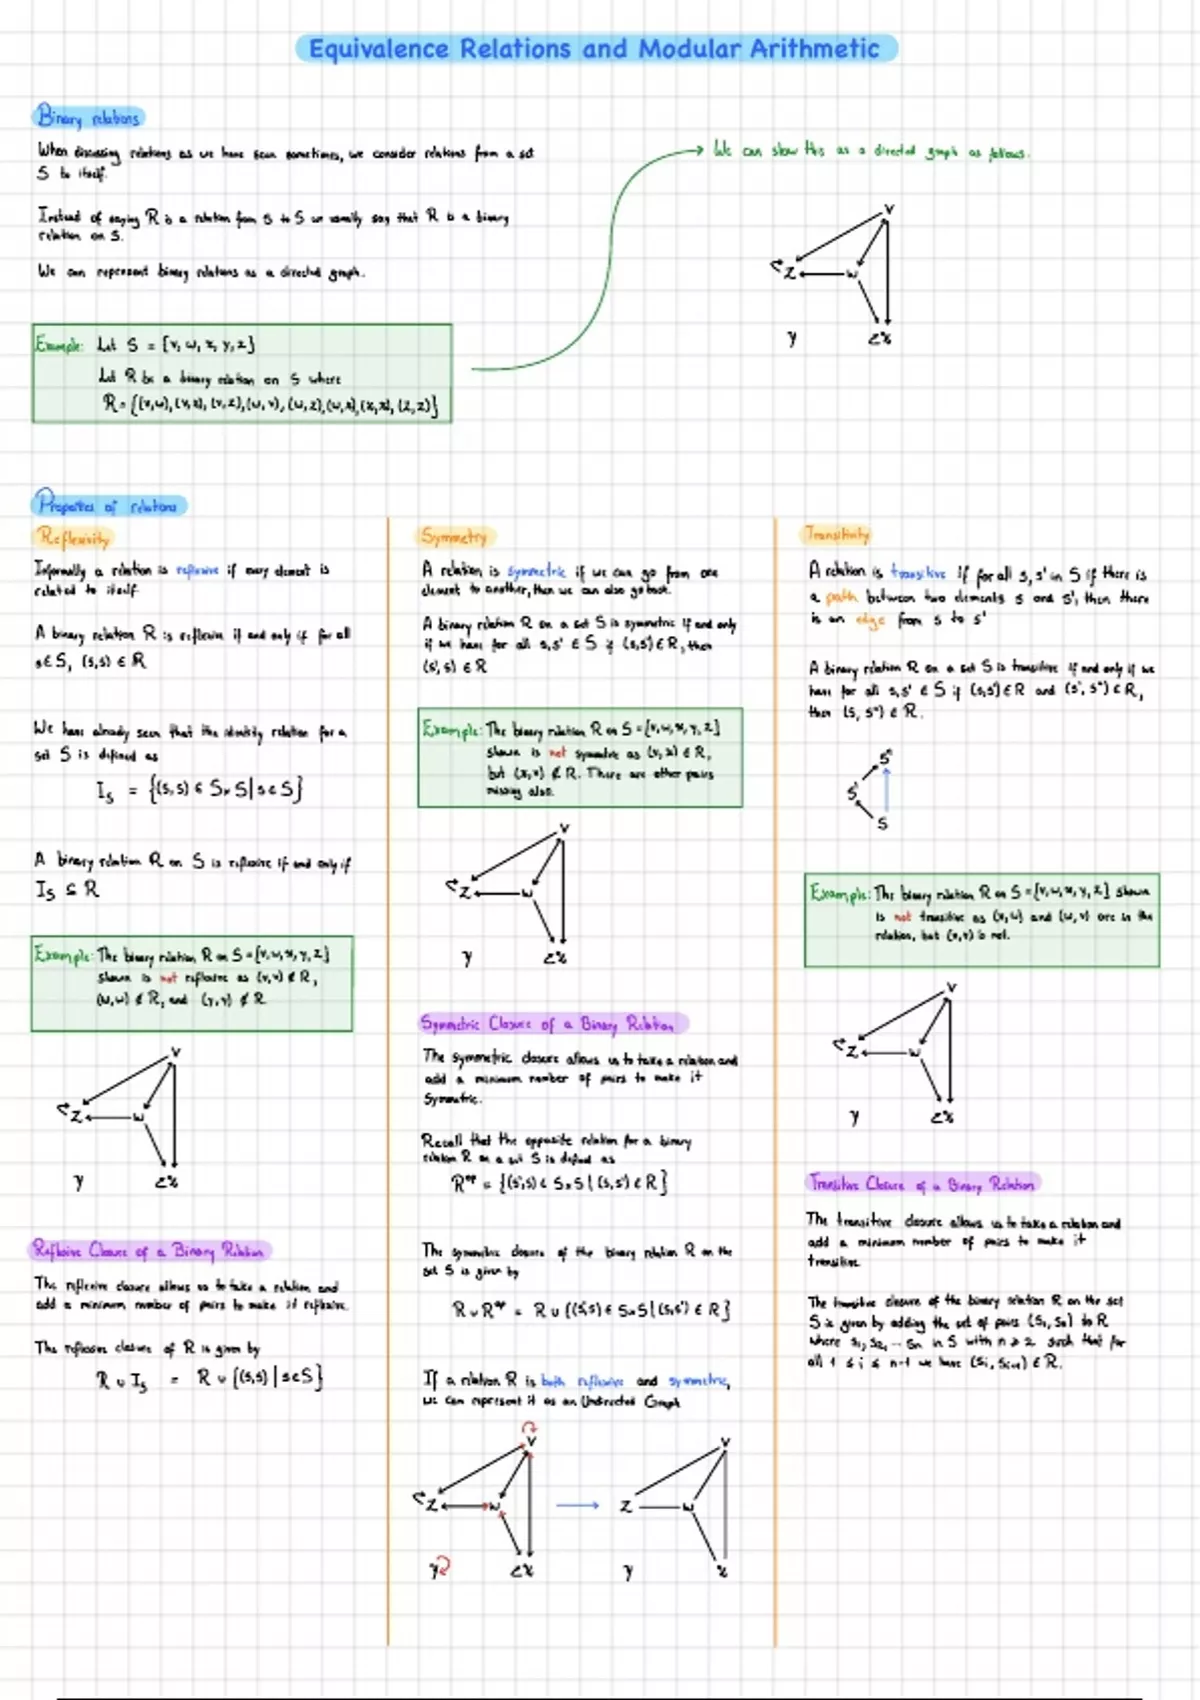 Equivalence Relations and Modular Arithmetic
Binary relations
When discussing relations as we have seen sometimes, we consider relations from a set
S to itself.
Instead of saying R is a relation from S to S we usually say that R is a binary
relation on S.
We can represent binary relations as a directed graph.
Example: Let S = {v, w, x, y, z}
Let R be a binary relation on S where
R = {(v,w), (v,x), (v,z), (w,v), (w,z), (w,x), (x,x), (z,z)}
We can show this as a directed graph as follows.
V
Z W
y x
Properties of relations
Reflexivity
Informally a relation is reflexive if every element is
related to itself
A binary relation R is reflexive if and only if for all
s∈S, (s,s) ∈ R
We have already seen that the identity relation for a
set S is defined as
I_S = {(s,s) ∈ S×S | s∈S}
A binary relation R on S is reflexive if and only if
I_S ⊆ R
Example: The binary relation R on S = {v,w,x,y,z}
shown is not reflexive as (v,v) ∉ R,
(w,w) ∉ R, and (y,y) ∉ R
V
Z W
y x
Reflexive Closure of a Binary Relation
The reflexive closure allows us to take a relation and
add a minimum number of pairs to make it reflexive.
The reflexive closure of R is given by
R ∪ I_S = R ∪ {(s,s) | s∈S}
Symmetry
A relation is symmetric if we can go from one
element to another, then we can also go back.
A binary relation R on a set S is symmetric if and only
if we have for all s,s' ∈ S if (s,s') ∈ R, then
(s', s) ∈ R
Example: The binary relation R on S = {v,w,x,y,z}
shown is not symmetric as (v,x) ∈ R,
but (x,v) ∉ R. There are other pairs
missing also.
V
Z W
y x
Symmetric Closure of a Binary Relation
The symmetric closure allows us to take a relation and
add a minimum number of pairs to make it
Symmetric.
Recall that the opposite relation for a binary
relation R on a set S is defined as
R^op = {(s',s) ∈ S×S | (s,s') ∈ R}
The symmetric closure of the binary relation R on the
set S is given by
R ∪ R^op = R ∪ {(s',s) ∈ S×S | (s,s') ∈ R}
If a relation R is both reflexive and symmetric,
we can represent it as an Undirected Graph
V V
Z W Z W
y x y x
Transitivity
A relation is transitive if for all s, s' in S if there is
a path between two elements s and s', then there
is an edge from s to s'
A binary relation R on a set S is transitive if and only if we
have for all s,s' ∈ S if (s,s') ∈ R and (s', s'') ∈ R,
then (s, s'') ∈ R.
S''
S'
S
Example: The binary relation R on S = {v,w,x,y,z} shown
is not transitive as (v,w) and (w,v) are in the
relation, but (v,v) is not.
V
Z W
y x
Transitive Closure of a Binary Relation
The transitive closure allows us to take a relation and
add a minimum number of pairs to make it
transitive
The transitive closure of the binary relation R on the set
S is given by adding the set of pairs (s₁, sₙ) to R
where s₁, s₂, ... sₙ in S with n ≥ 2 such that for
all 1 ≤ i ≤ n-1 we have (sᵢ, sᵢ₊₁) ∈ R.